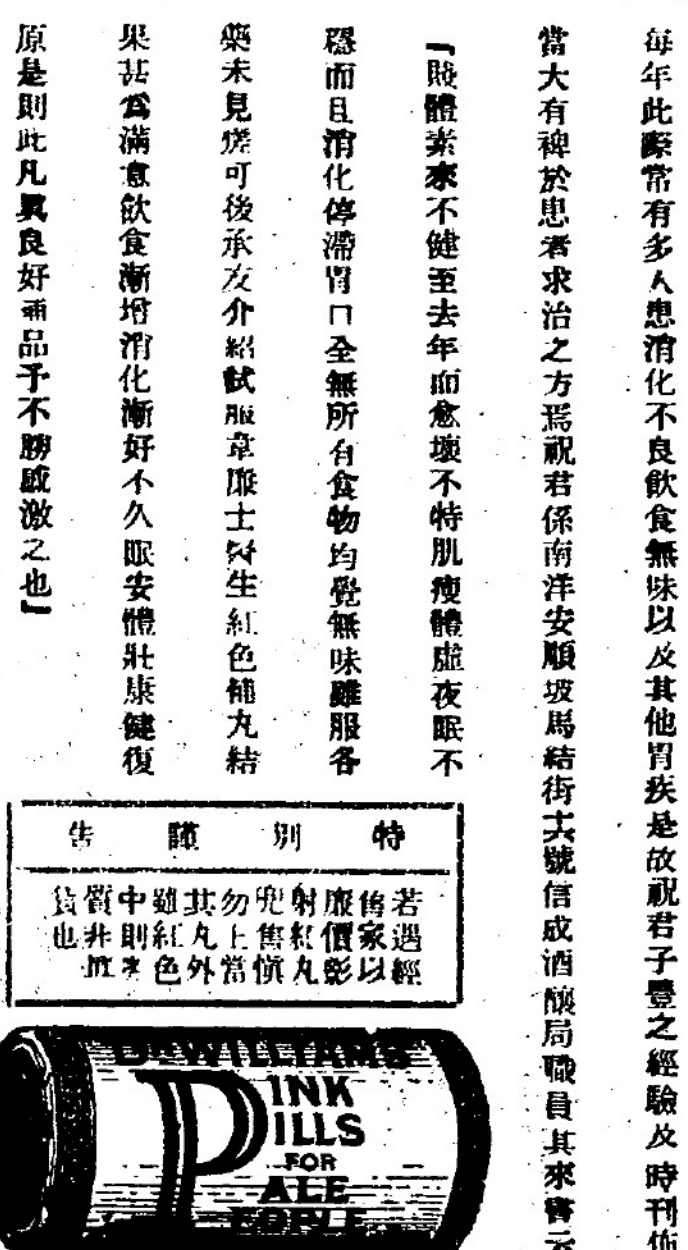 每年此際常有多人患消化不良飲食無味以及其他胃疾是故祝君子豐之經驗及時刊佈
當大有裨於患者求治之方焉祝君係南洋安順坡馬結街六號信成酒釀局職員其來書云
『賤體素來不健至去年而愈壞不特肌瘦體虛夜眠不
穩而且消化停滯胃口全無所有食物均覺無味雖服各
藥未見痊可後承友介紹試服韋廉士醫生紅色補丸結
果甚為滿意飲食漸增消化漸好不久眠安體壯康健復
原是則此凡異良好補品予不勝感激之也』
特別謹告
若遇經
售家以
廉價彭
射紅丸
兜售慎
勿上當
其丸外
雖紅色
中則
質非
貨也
DR WILLIAMS
PINK
PILLS
FOR
PALE
PEOPLE